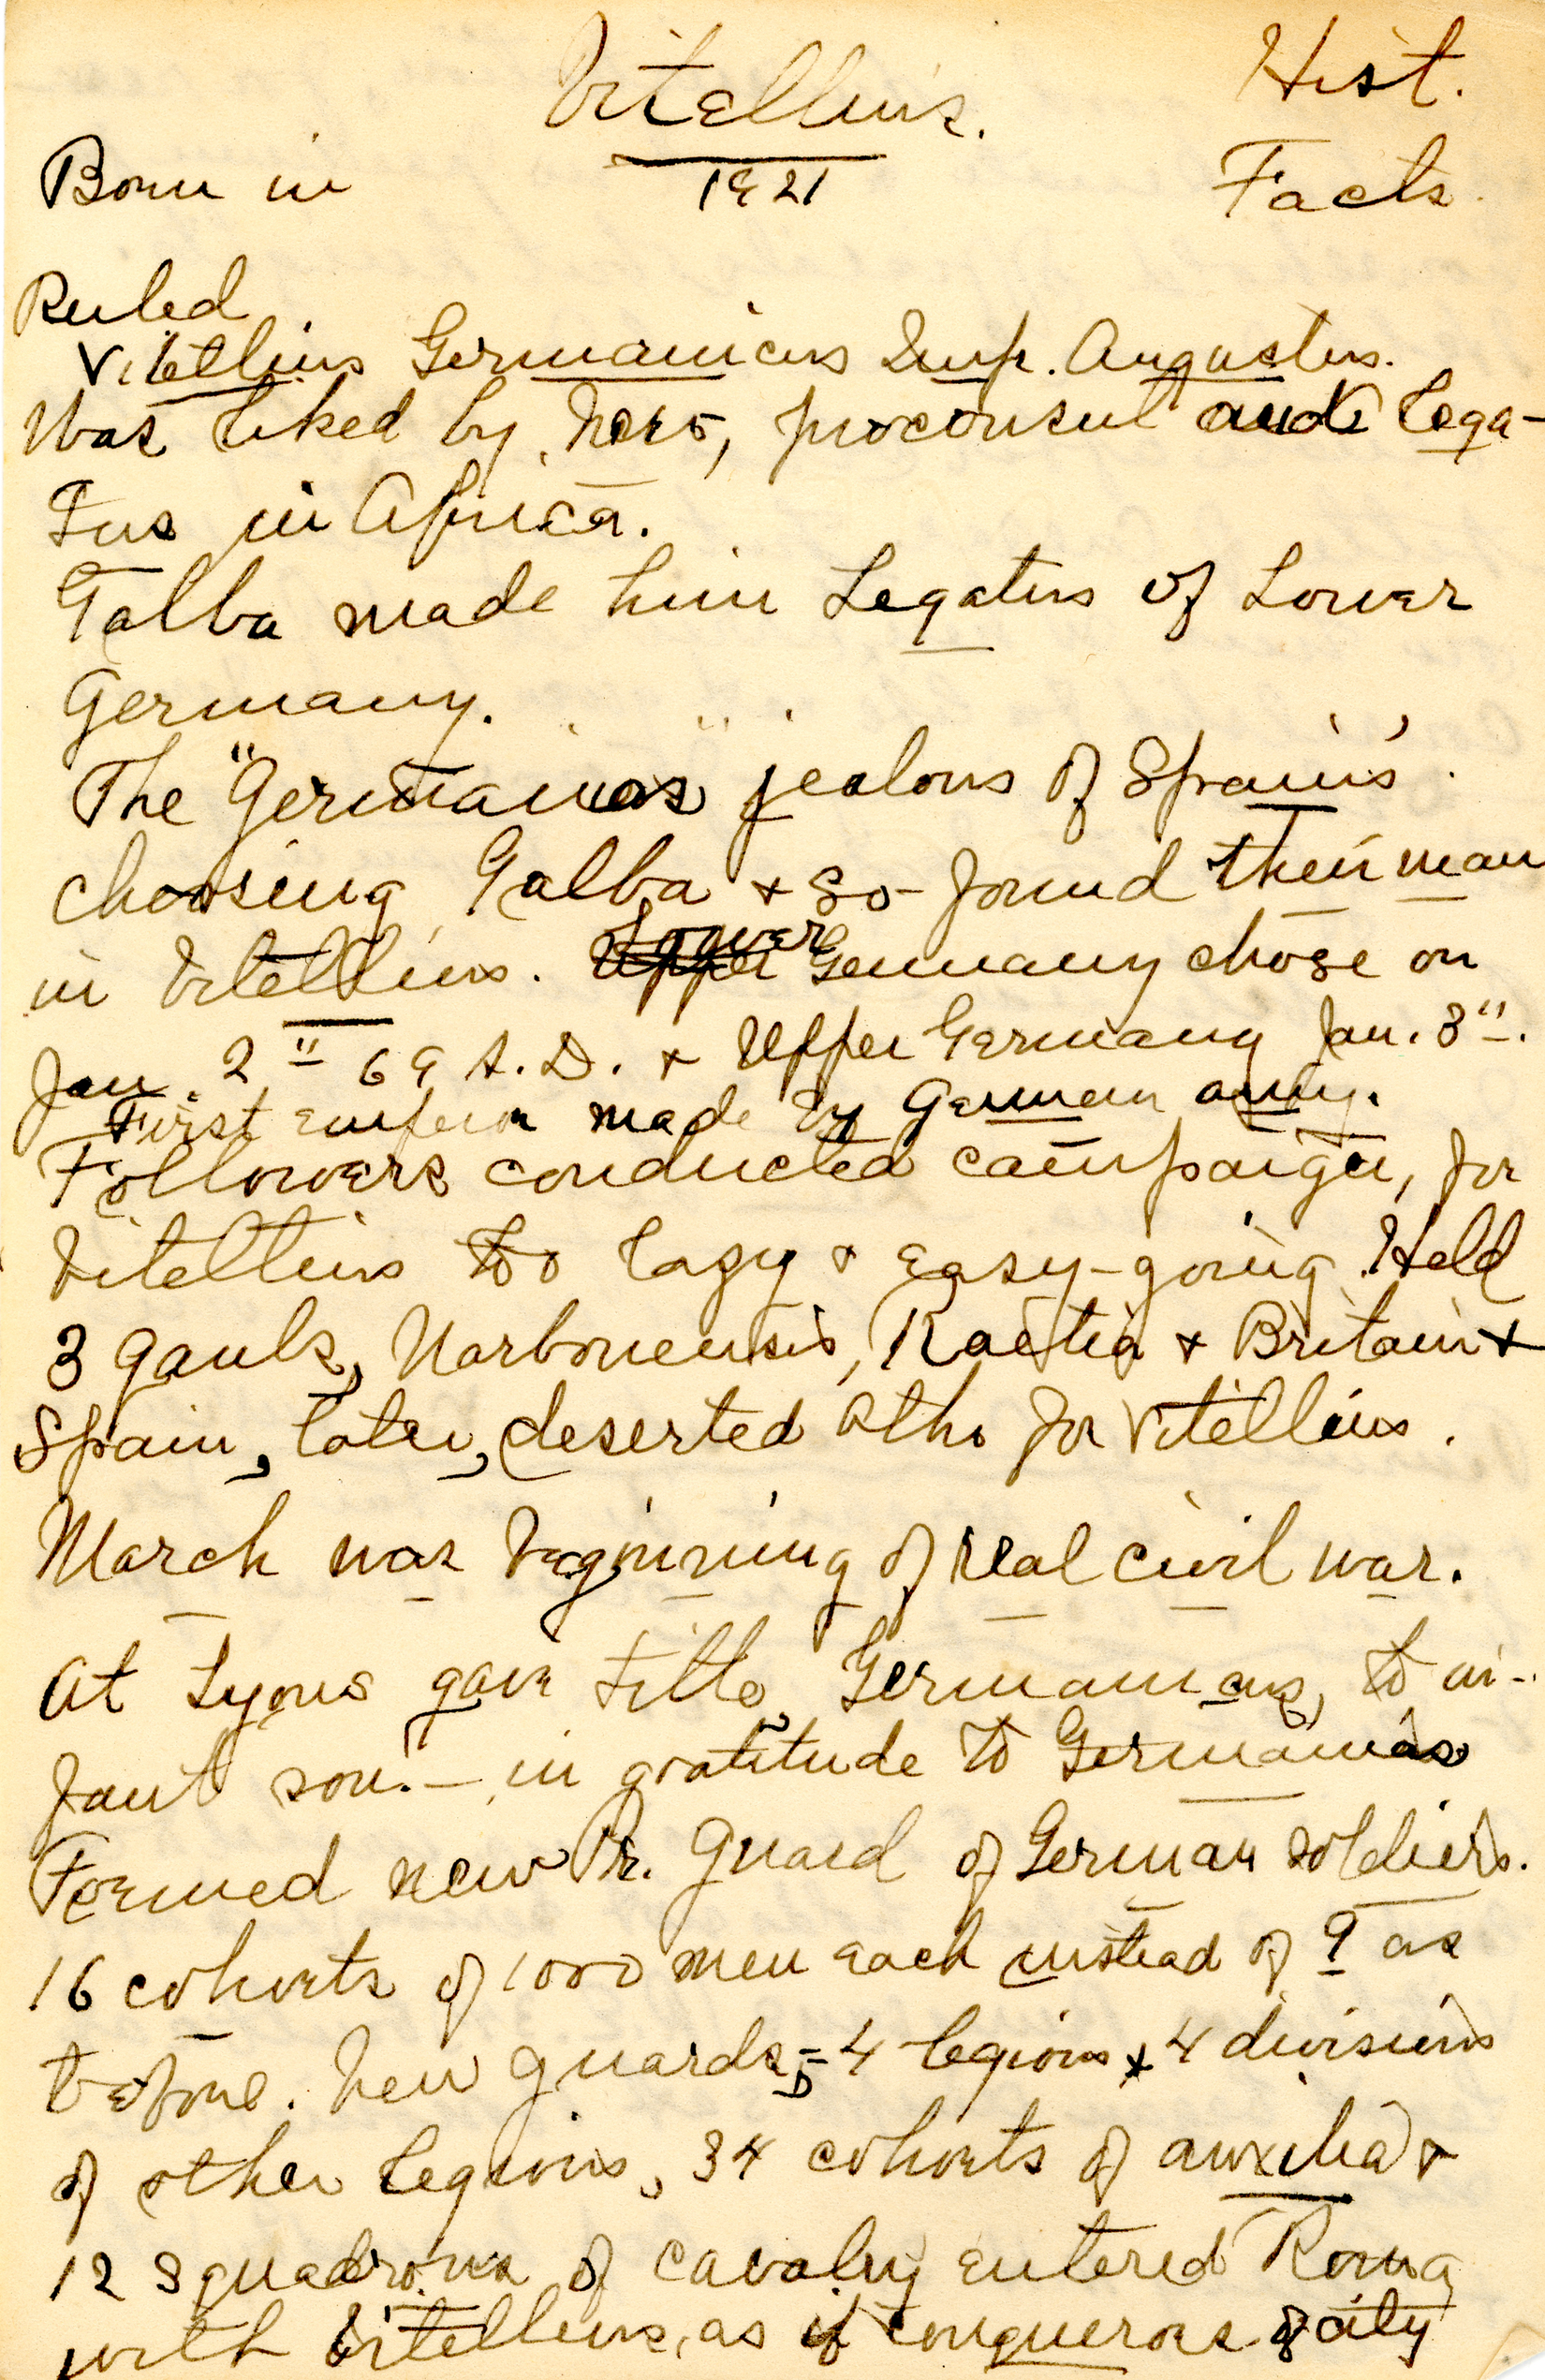 Vitellius.
Hist.
Facts.
1921
Born in
Ruled
Vitellius Germanicus Imp. Augustus.
Was liked by Nero, proconsul and lega-
tus in Africa.
Galba made him Legatus of Lower
Germany.
The "Germanias" jealous of Spain's
choosing Galba + so found their man
in Vitellius. Upper Lower Germany chose on
Jan. 2" 69 A.D. + Upper Germany Jan. 3".
First emperor made by German army.
Followers conducted campaign, for
Vitellius too lazy + easy-going. Held
3 Gauls, Narbonensis, Raetia + Britain +
Spain, later, deserted Otho for Vitellius.
March was beginning of real civil war.
At Lyons gave title, Germanicus, to in-
fant son. — in gratitude to Germanias
Formed new Pr. Guard of German soldiers.
16 cohorts of 1000 men each instead of 9 as
before. New guards, = 4 legions + 4 divisions
of other legions, 34 cohorts of auxilia +
12 squadrons of cavalry entered Rome
with Vitellius, as if conquerors of city